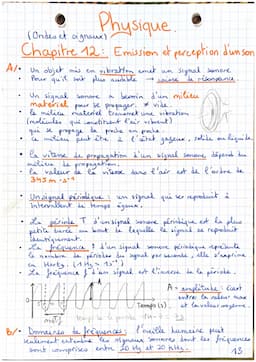 Physique
(Ondes et signaux)
Chapitre 12: Emission et perception d'un son
A/• Un objet mis en vibration émet un signal sonore.
• Pour qu'il soit plus audible → caisse de résonance
• Un signal sonore a besoin d'un milieu
matériel pour se propager. ≠ vide.
• Le milieu matériel transmet une vibration
(molécules qui constituent l'air vibrent)
qui se propage de proche en proche.
• Ce milieu peut être à l'état gazeux, solide ou liquide.
• La vitesse de propagation d'un signal sonore, dépend du
milieu de propagation.
• La valeur de la vitesse dans l'air est de l'ordre de
345 m·s⁻¹
Un signal périodique: un signal qui se reproduit à
intervalles de temps égaux.
• La période T d'un signal sonore périodique est la plus
petite durée au bout de laquelle le signal se reproduit
identiquement.
• La fréquence f d'un signal sonore périodique représente
le nombre de périodes du signal par seconde, elle s'exprime
en Hertz. (1 Hz = 1s⁻¹)
• La fréquence f d'un signal est l'inverse de la période.
A = amplitude: écart
entre la valeur max
et la valeur moyenne.
Temps (s)
B/• Domaines de fréquences: l'oreille humaine peut
seulement entendre les signaux sonores dont les fréquences
sont comprises entre 20 Hz et 20 kHz.
13